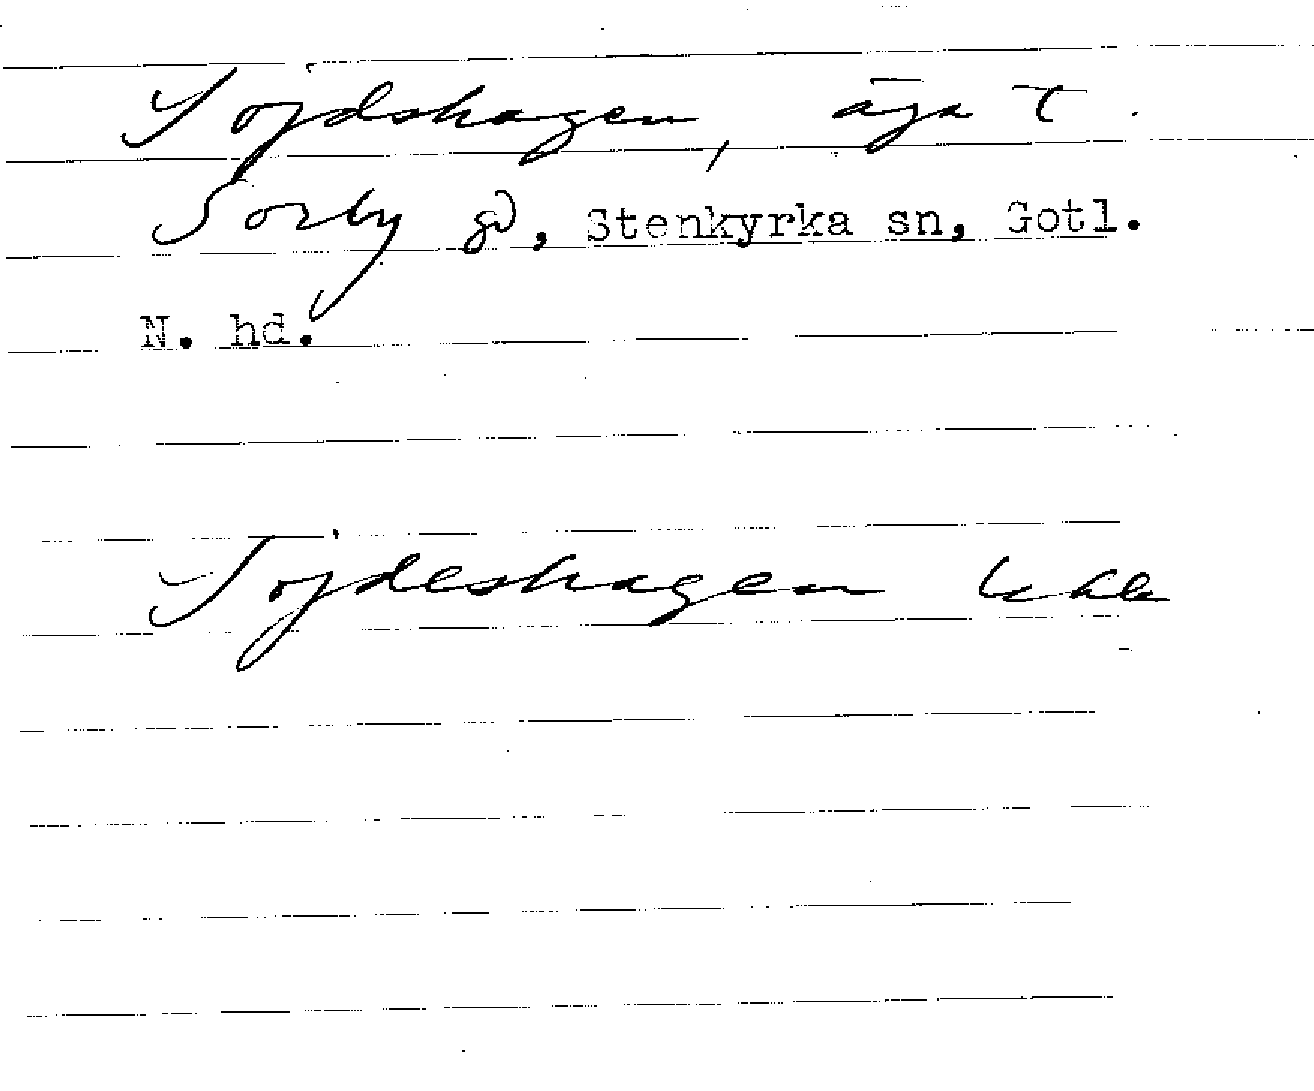 Sojdshagen, äga t.
Sorby gd, Stenkyrka sn, Gotl.
N. hd.
Sojdeshagen